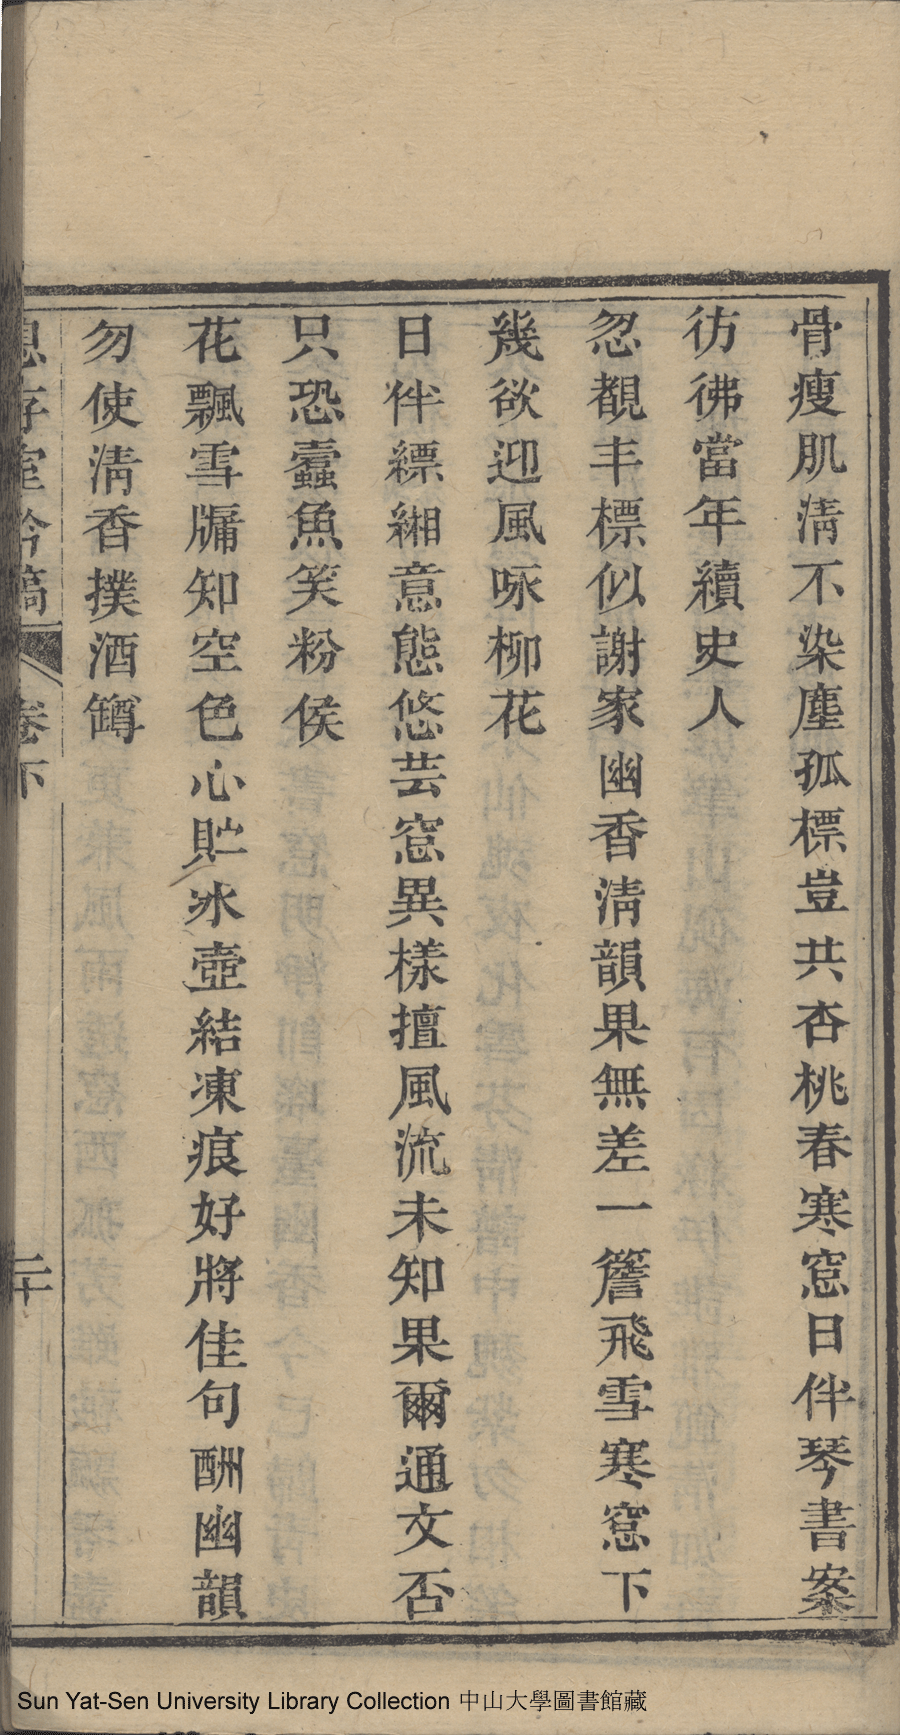 骨瘦肌淸不染塵孤標豈共杏桃春寒窻日伴琴書案
彷彿當年續史人
忽覩丰標似謝家幽香淸韻果無差一簷飛雪寒窻下
幾欲迎風咏柳花
日伴縹緗意態悠芸窻異樣擅風流未知果爾通文否
只恐蠹魚笑粉侯
花飄雪牖知空色心貯冰壺結凍痕好將佳句酬幽韻
勿使淸香撲酒罇
息存室吟稿 卷下 二十
Sun Yat-Sen University Library Collection 中山大學圖書館藏